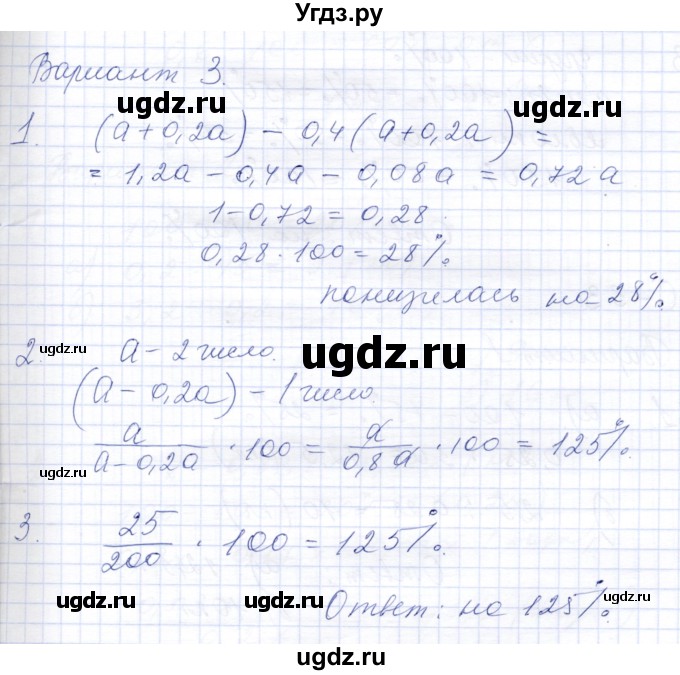 Угдз.ру
Вариант 3.
1. (a+0,2a) - 0,4(a+0,2a) =
= 1,2a - 0,4a - 0,08a = 0,72a
1-0,72 = 0,28
0,28 · 100 = 28%.
понизилась на 28%.
2. a - 2 число.
(a - 0,2a) - 1 число.
a/(a-0,2a) · 100 = a/(0,8a) · 100 = 125%.
3. 25/200 · 100 = 125%.
Ответ: на 125%.
ugdz.ru
ugdz.ru
ugdz.ru
ugdz.ru
ugdz.ru
ugdz.ru
ugdz.ru
ugdz.ru
ugdz.ru
ugdz.ru